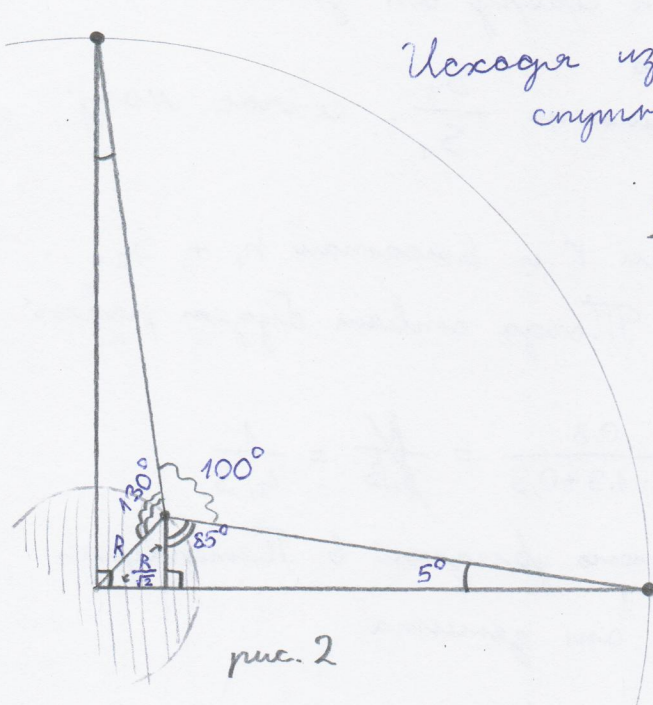 Исходя из
спутн
130°
100°
85°
R
R/√2
5°
рис. 2